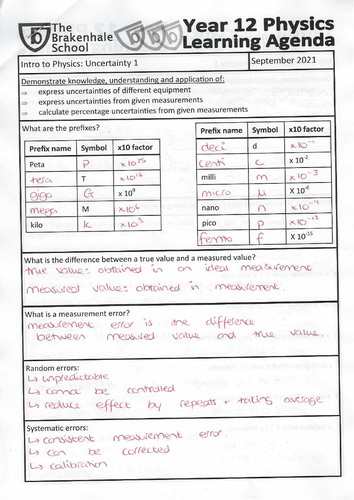 The Brakenhale School
Year 12 Physics Learning Agenda
Intro to Physics: Uncertainty 1
September 2021
Demonstrate knowledge, understanding and application of:
⇒ express uncertainties of different equipment
⇒ express uncertainties from given measurements
⇒ calculate percentage uncertainties from given measurements
What are the prefixes?
Prefix name Symbol x10 factor
Peta P x10¹⁵
tera T x10¹²
giga G x 10⁹
mega M x10⁶
kilo k x10³
Prefix name Symbol x10 factor
deci d x10⁻¹
centi c x 10⁻²
milli m x10⁻³
micro μ X 10⁻⁶
nano n x10⁻⁹
pico p x10⁻¹²
femto f X 10⁻¹⁵
What is the difference between a true value and a measured value?
true value: obtained in an ideal measurement
measured value: obtained in measurement.
What is a measurement error?
measurement error is the difference
between measured value and true value.
Random errors:
↳ unpredictable
↳ cannot be controlled
↳ reduce effect by repeats + taking average
Systematic errors:
↳ consistent measurement error.
↳ can be corrected
↳ calibration